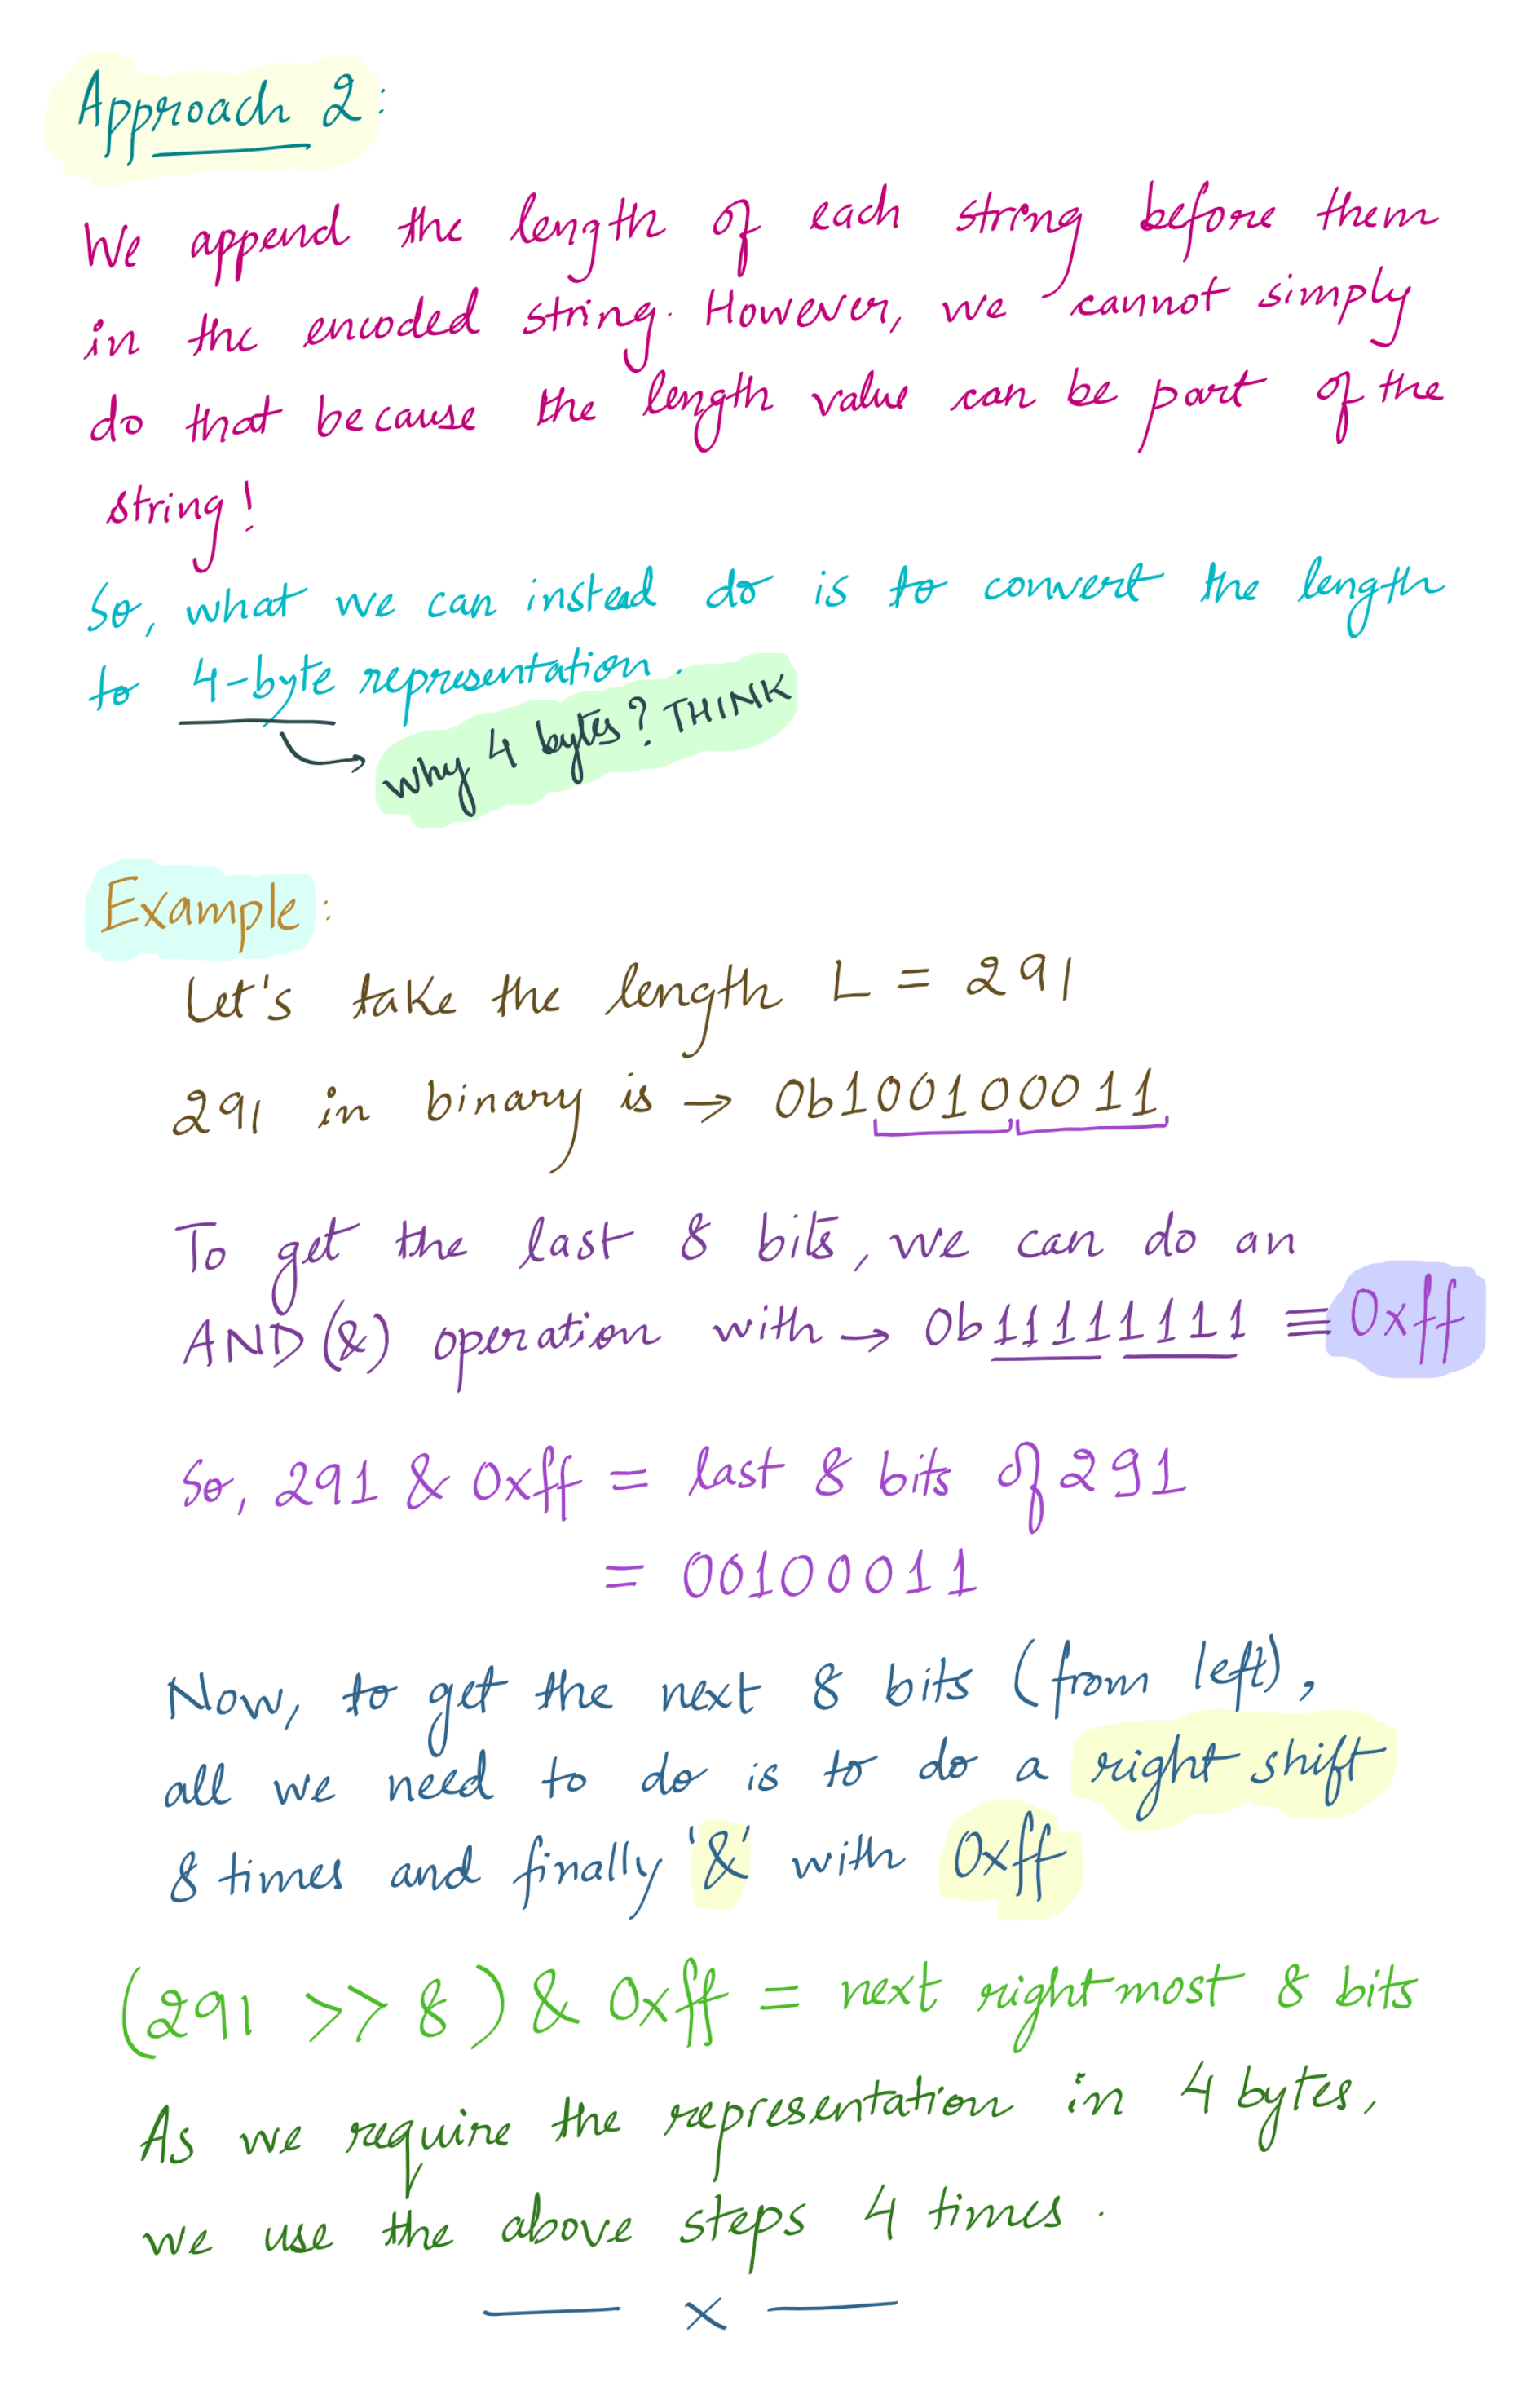 Approach 2:
We append the length of each string before them
in the encoded string. However, we cannot simply
do that because the length value can be part of the
string!
So, what we can instead do is to convert the length
to 4-byte representation.
Why 4 bytes? THINK
Example:
Let's take the length L = 291
291 in binary is → 0b100100011
To get the last 8 bits, we can do an
AND(&) operation with → 0b11111111 ≡ 0xff
So, 291 & 0xff = last 8 bits of 291
= 00100011
Now, to get the next 8 bits (from left),
all we need to do is to do a right shift
8 times and finally '&' with 0xff
(291 >> 8) & 0xff = next rightmost 8 bits
As we require the representation in 4 bytes,
we use the above steps 4 times.
— x —